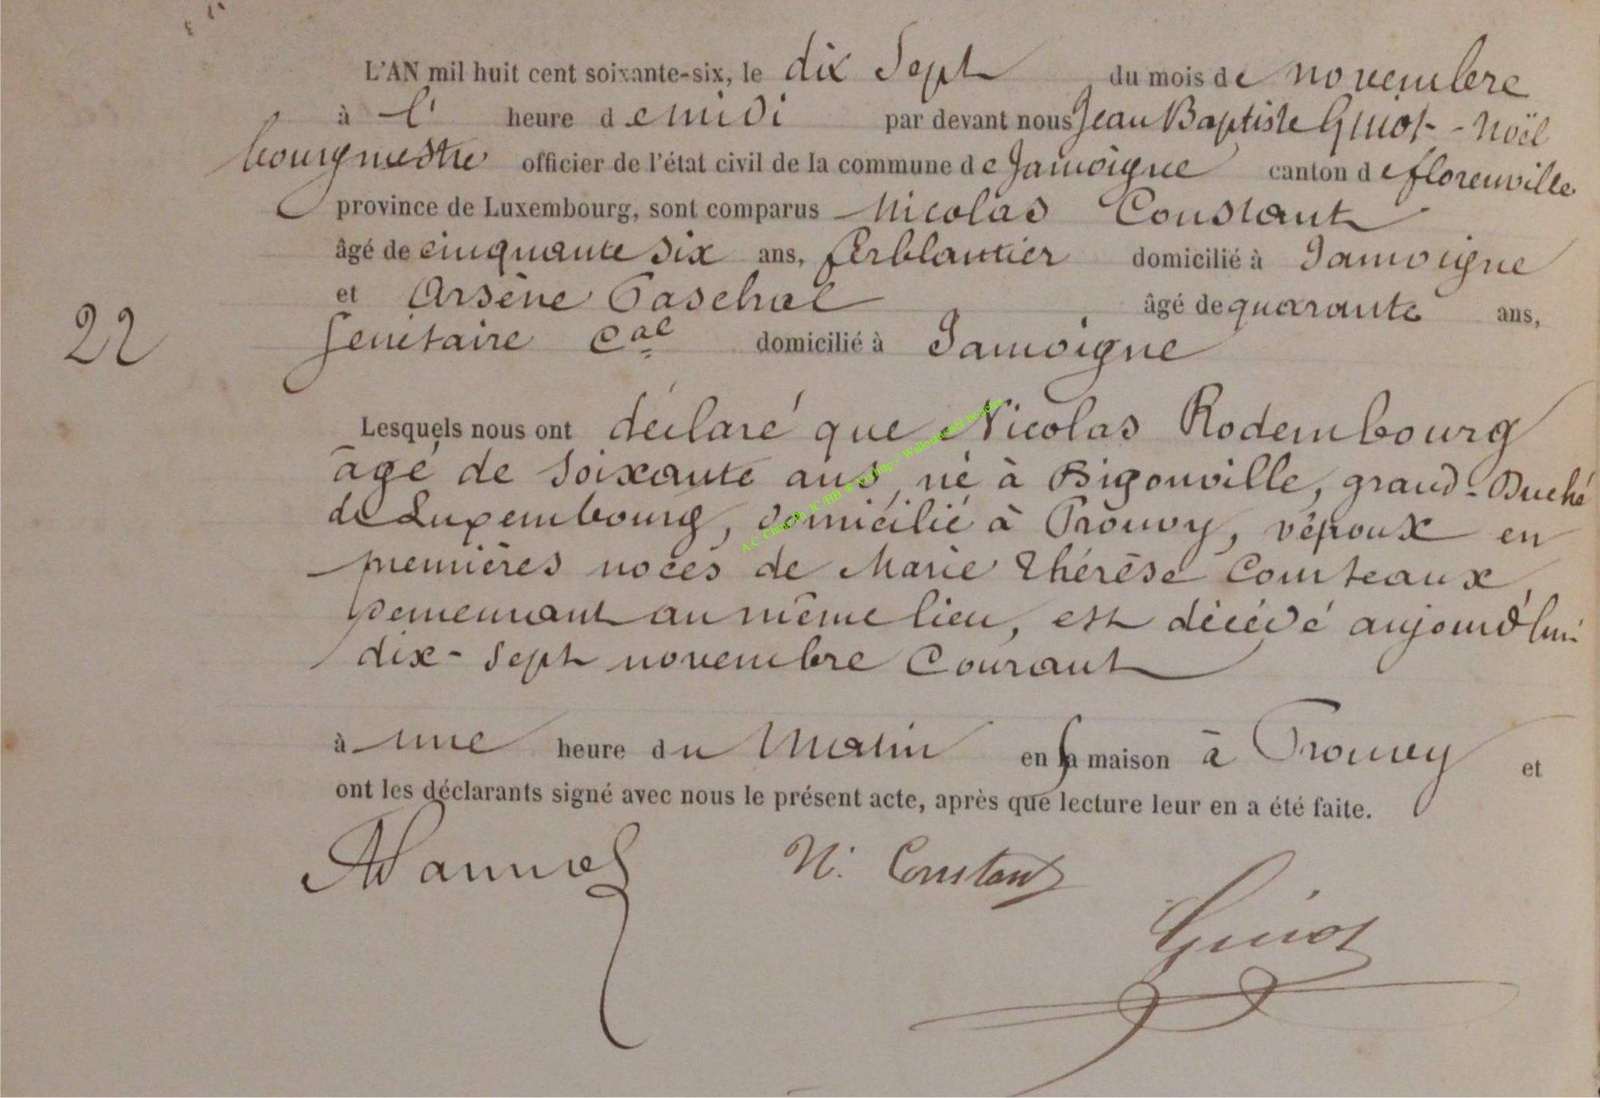 L'AN mil huit cent soixante-six, le dix Sept du mois de novembre
à l' heure de midi par devant nous Jean Baptiste Guiot - Noël
bourgmestre officier de l'état civil de la commune de Jamoigne canton de florenville
province de Luxembourg, sont comparus Nicolas Constant
âgé de cinquante six ans, ferblantier domicilié à Jamoigne
et Arsène âgé de quarante ans,
Secrétaire cal domicilié à Jamoigne
22
Lesquels nous ont déclaré que Nicolas Rodembourg
âgé de soixante ans, né à Bigonville, grand-Duché
de Luxembourg, domicilié à Prouvy, époux en
premières noces de Marie Thérèse
demeurant au même lieu, est décédé aujourd'hui
dix-sept novembre courant
à une heure du Matin en sa maison à Prouvy et
ont les déclarants signé avec nous le présent acte, après que lecture leur en a été faite.
N. Constant
Guiot